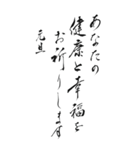 あなたの
健康と幸福を
お祈りします
元旦